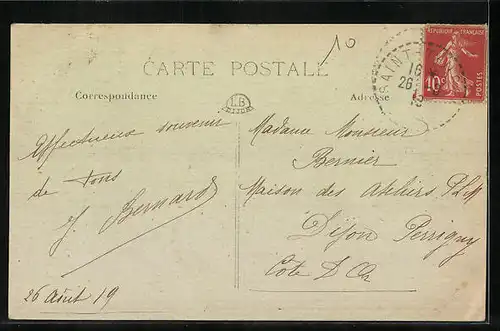 10
CARTE POSTALE
Correspondance
LB
DIJON
Adresse
RÉPUBLIQUE FRANÇAISE
10c
POSTES
SAINT
16
26
19
Affectueux souvenir
de tous
J. Bernard
26 Août 19
Madame Monsieur
Bernier
Maison des Ateliers P.L.M
Dijon Perrigny
Côte D'Or